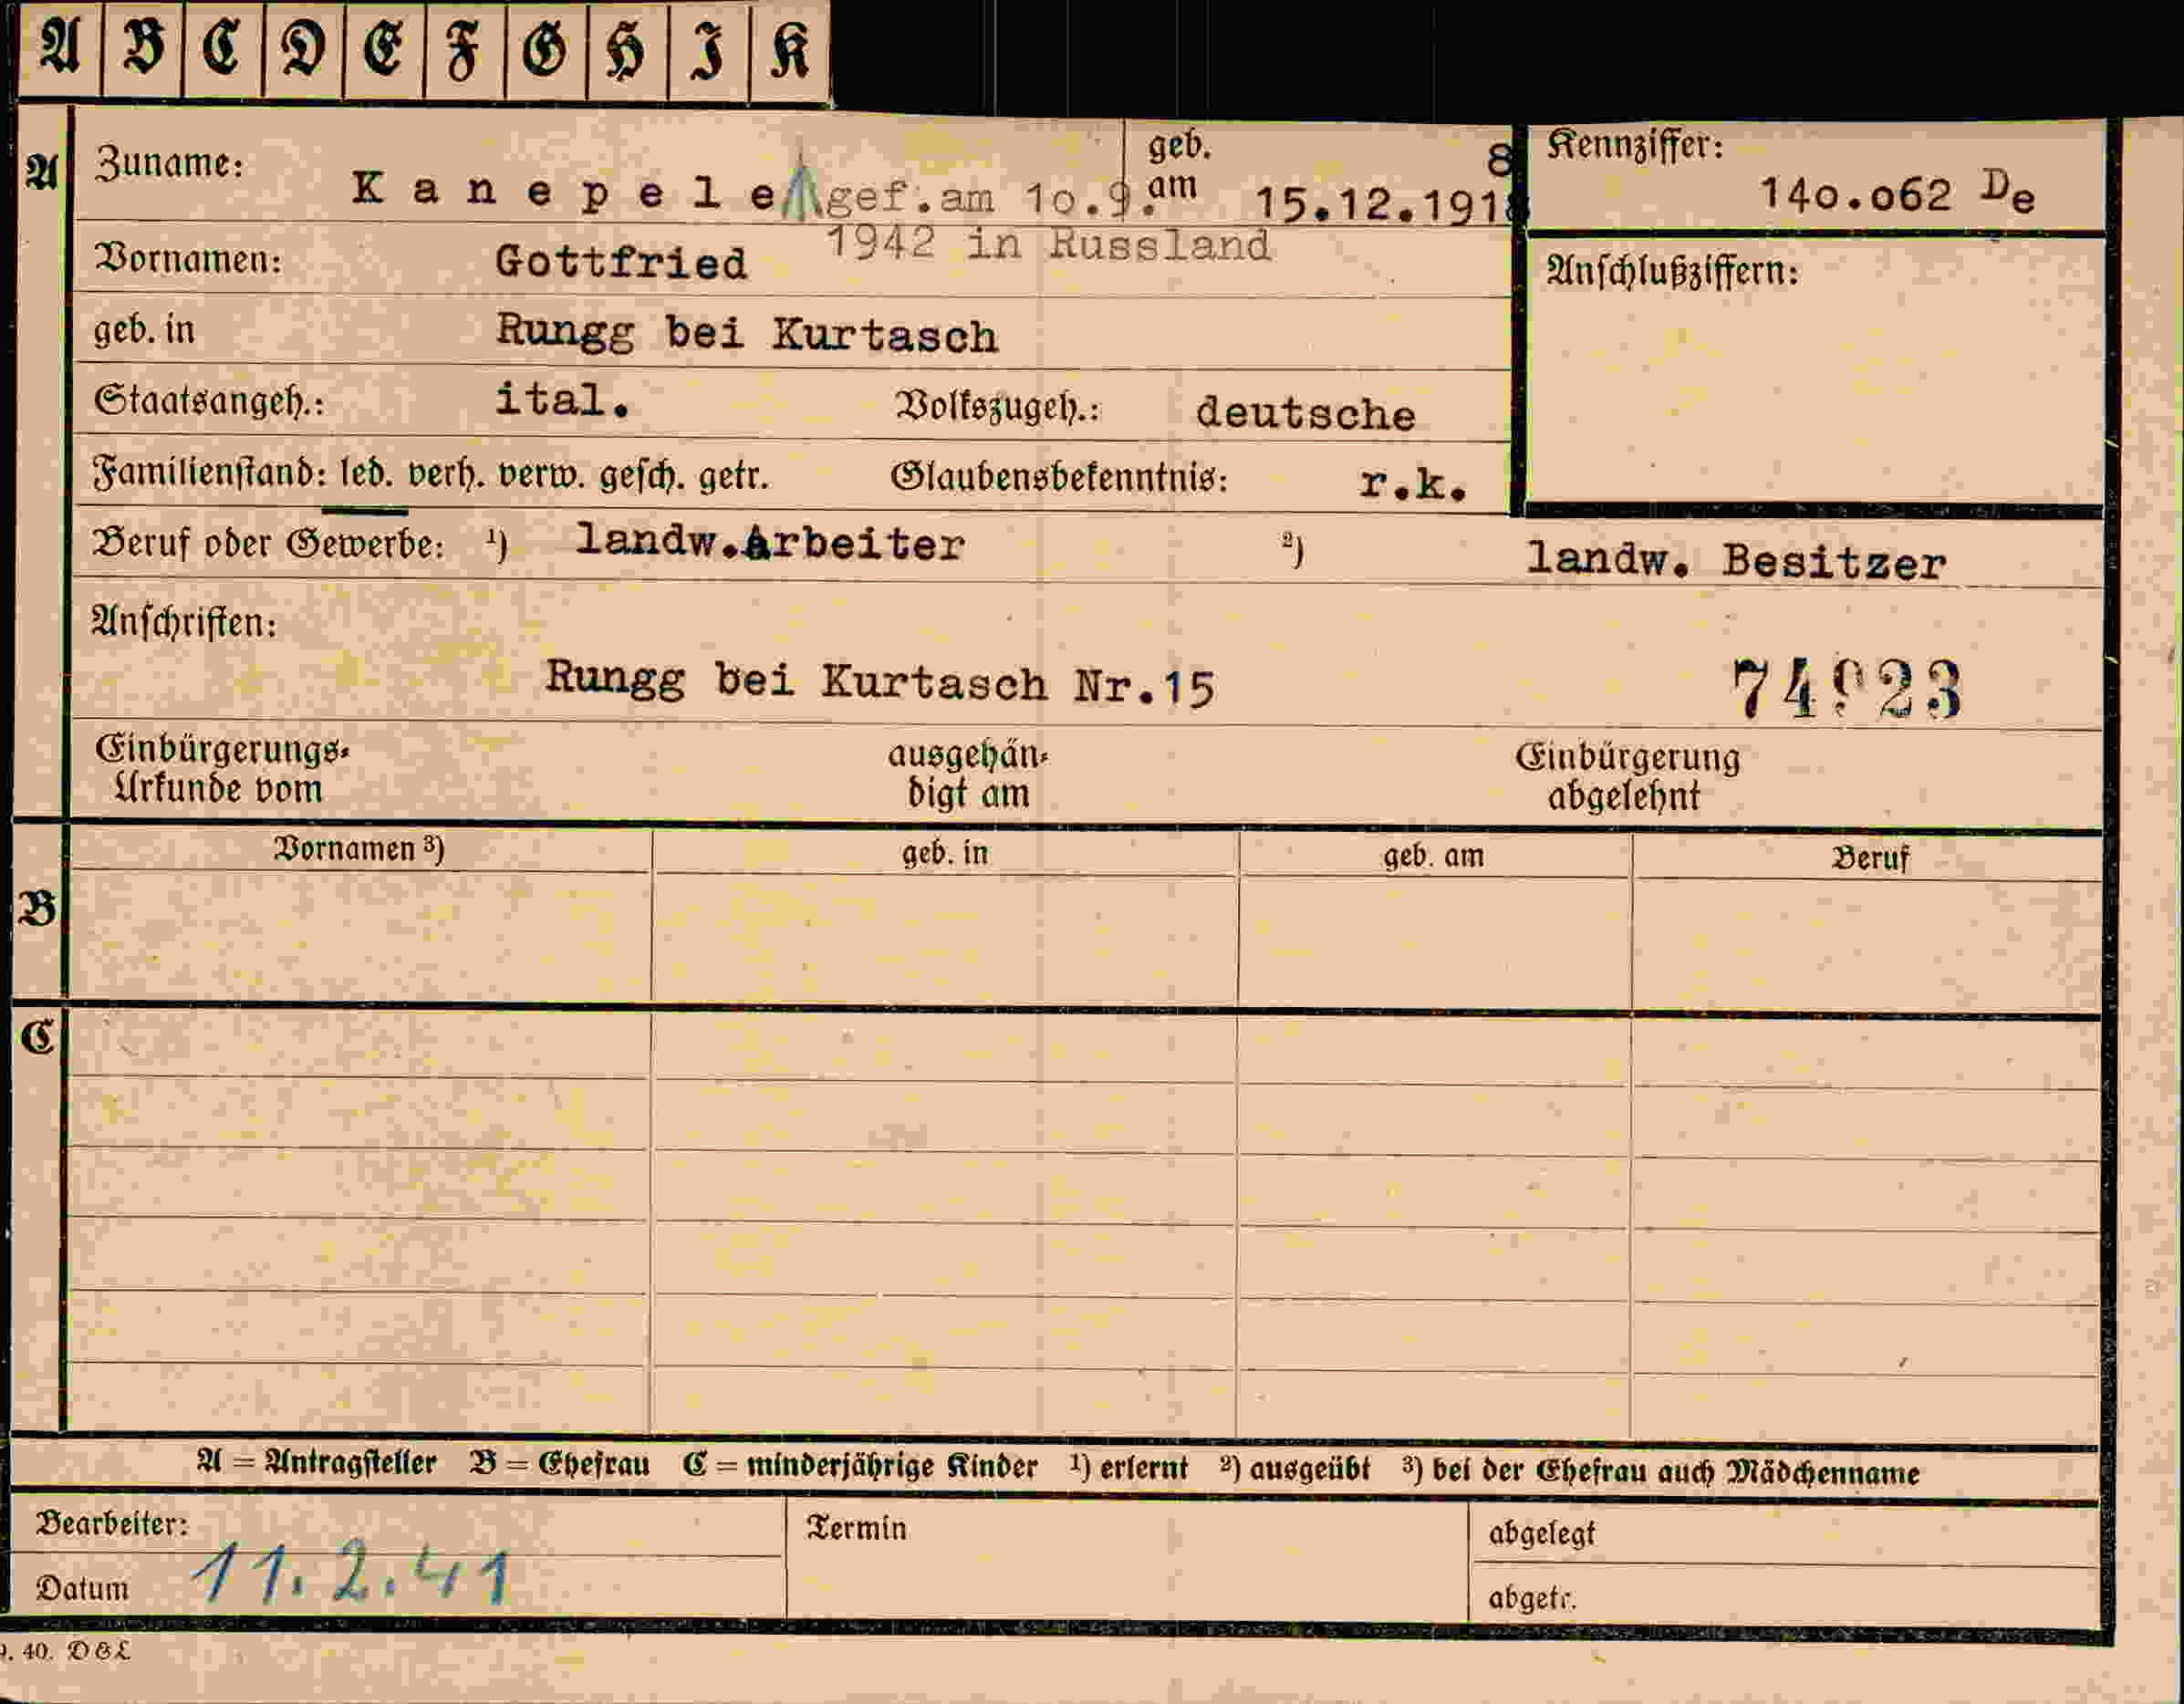 A B C D E F G H I K
A
Zuname: Kanepele gef.am 10.9. geb. am 15.12.1918 8
1942 in Russland
Kennziffer: 140.062 De
Vornamen: Gottfried
Anschlußziffern:
geb. in Rungg bei Kurtasch
Staatsangeh.: ital. Volkszugeh.: deutsche
Familienstand: led. verh. verw. gesch. getr. Glaubensbekenntnis: r.k.
Beruf oder Gewerbe: 1) landw.Arbeiter 2) landw. Besitzer
Anschriften:
Rungg bei Kurtasch Nr.15
Einbürgerungs-Urkunde vom ausgehändigt am Einbürgerung abgelehnt
B
Vornamen 3) geb. in geb. am Beruf
C
A = Antragsteller B = Ehefrau C = minderjährige Kinder 1) erlernt 2) ausgeübt 3) bei der Ehefrau auch Mädchenname
Bearbeiter: Termin abgelegt
Datum 11.2.41 abgetr.
40. DGL